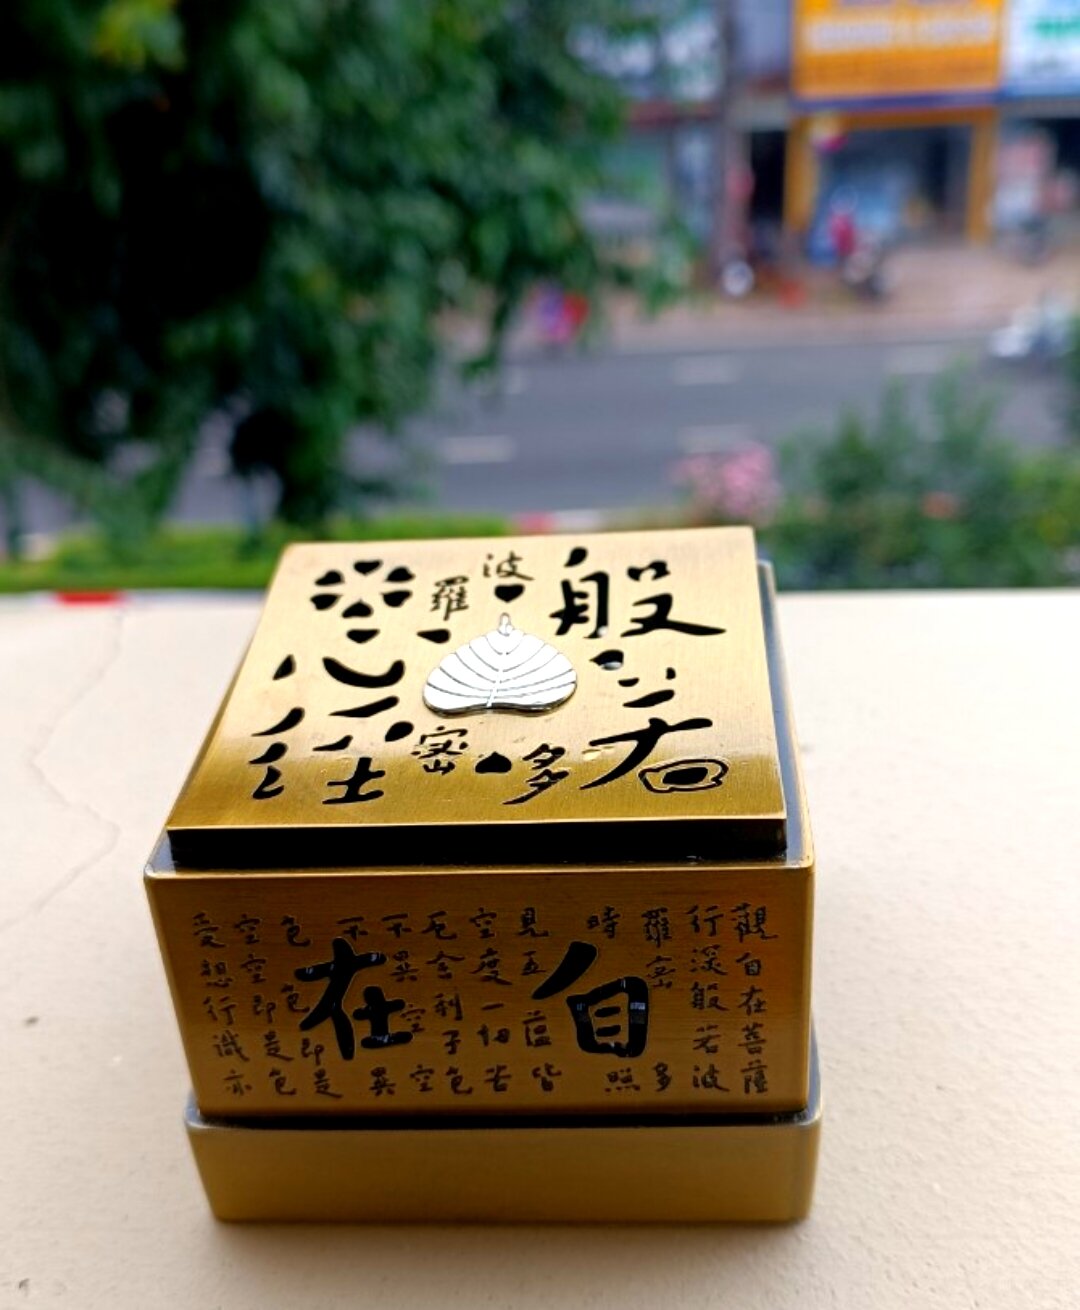 般若
波羅
密多
心経
自在
觀自在菩薩
行深般若波
羅密多
時照
見五蘊皆
空度一切苦
厄舍利子色
不異空空
不異
色色即是
空空即是色
受想行識亦